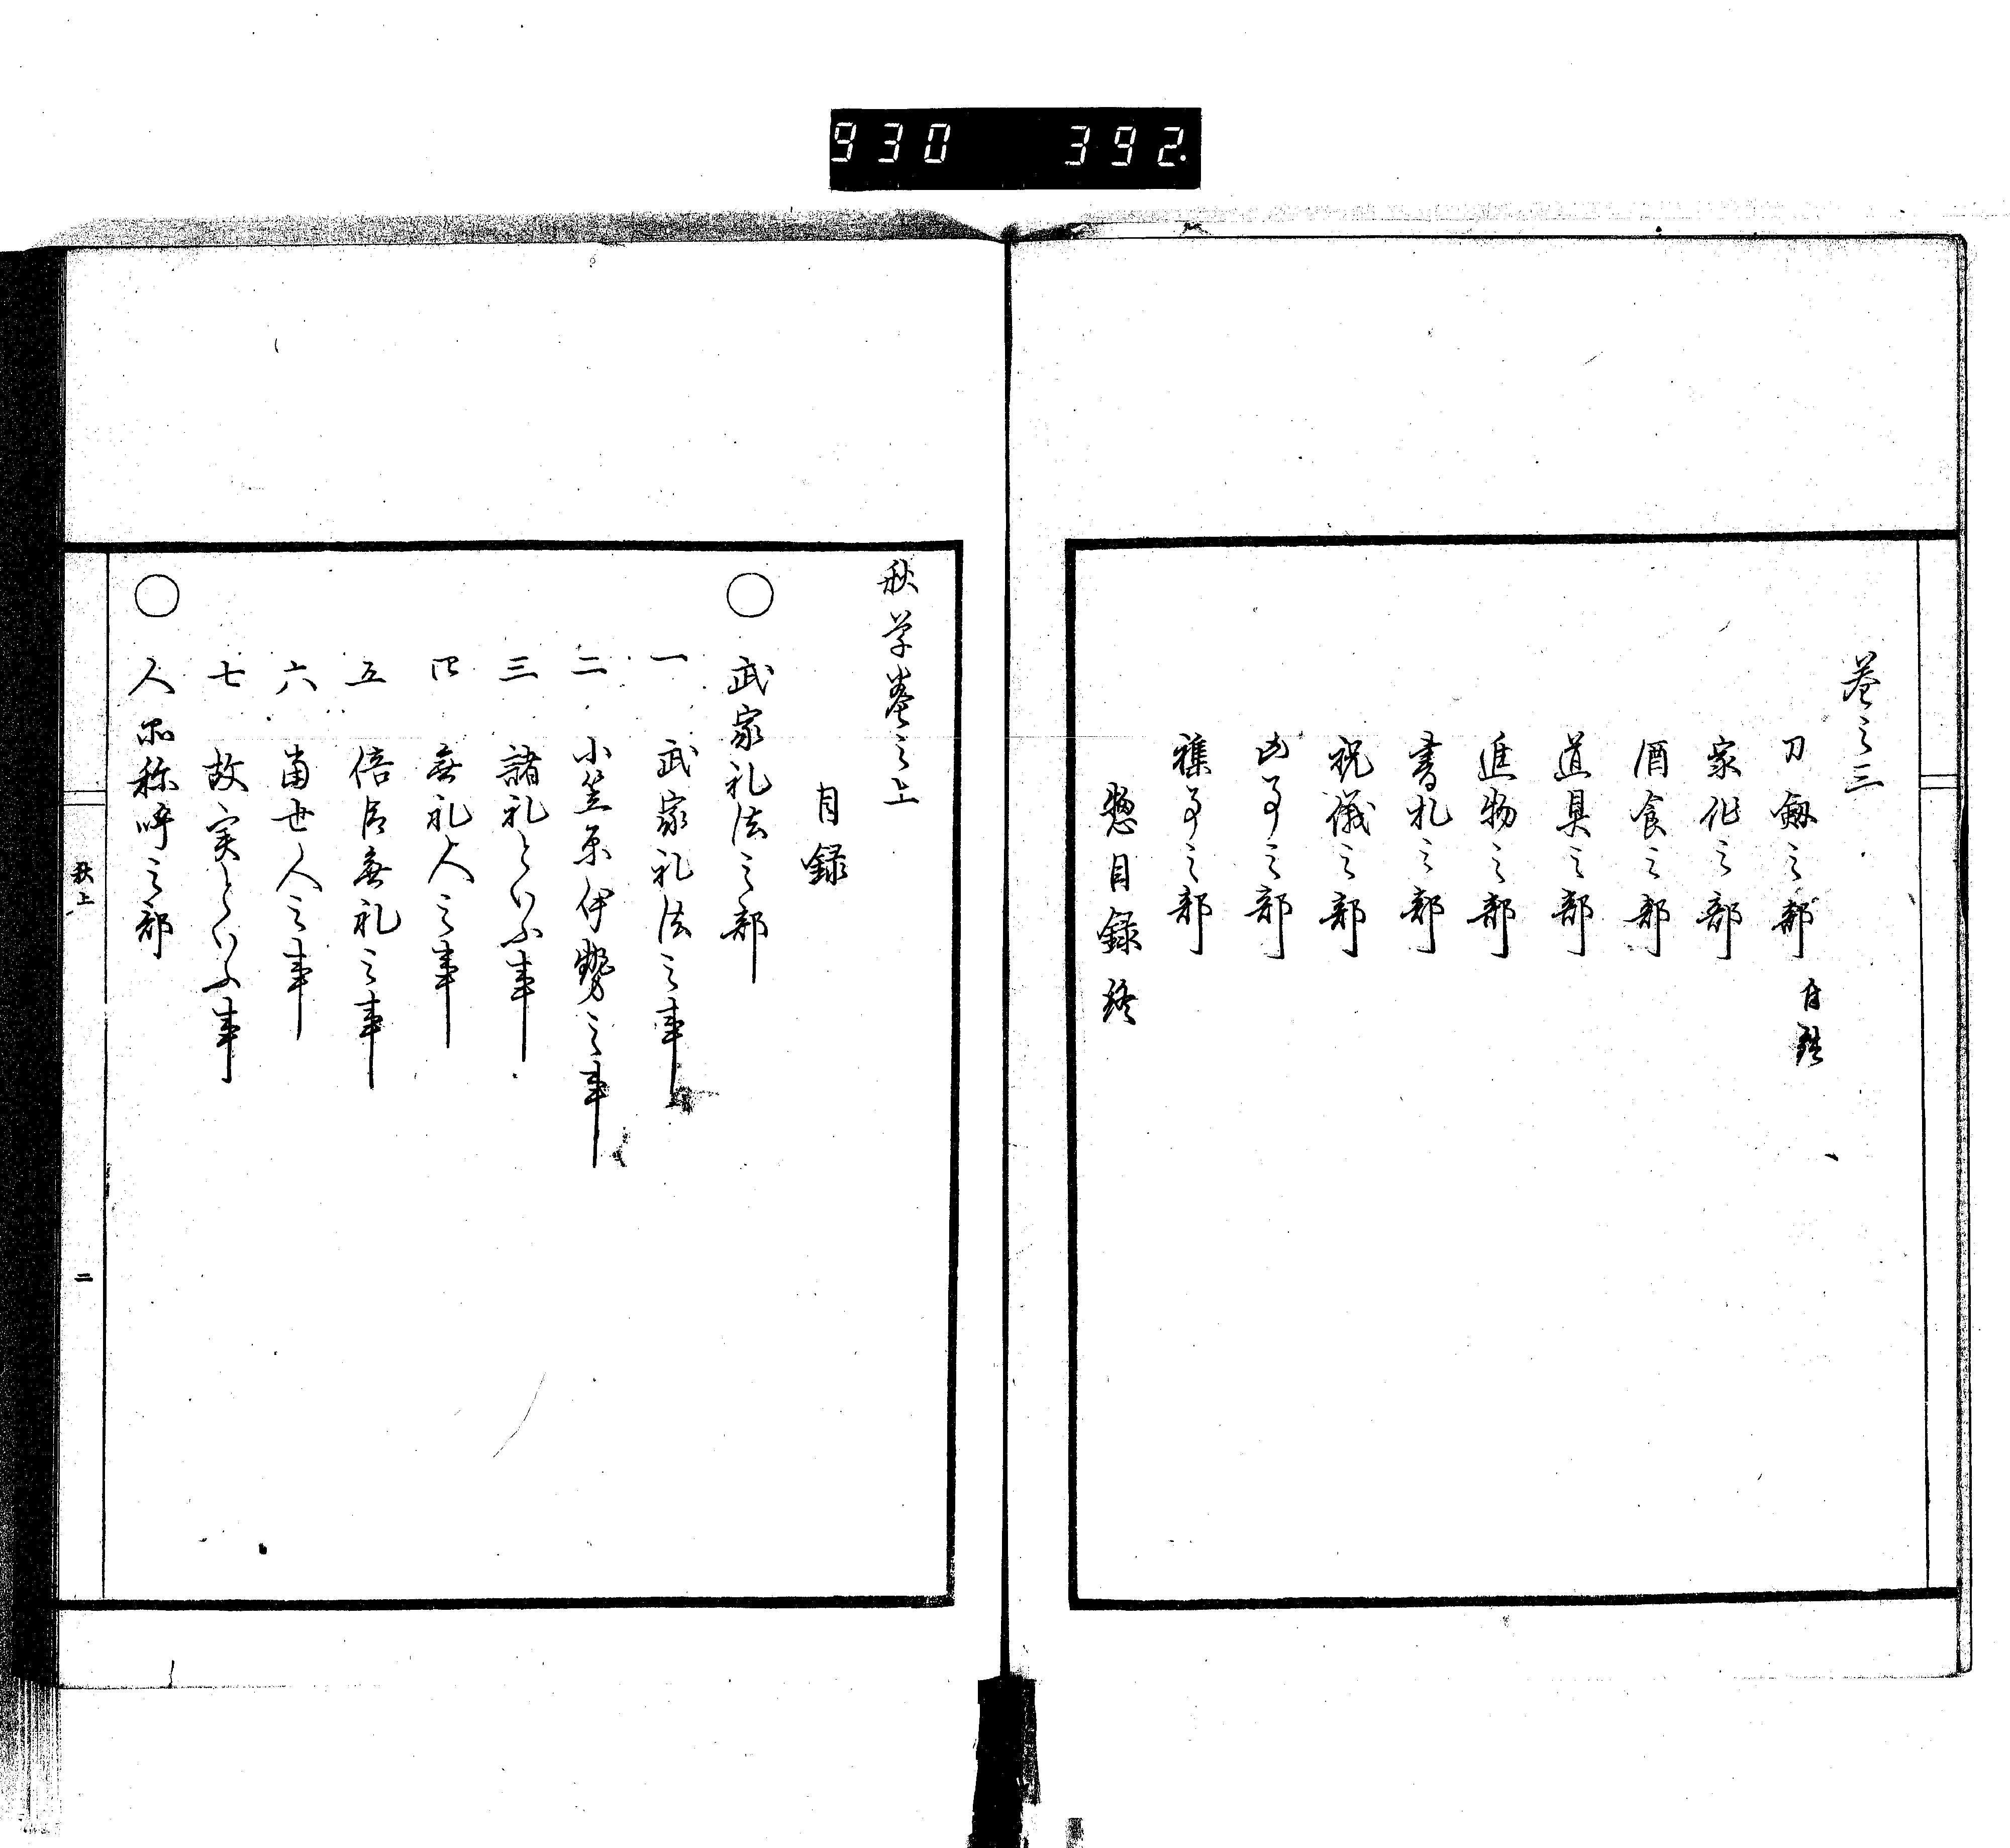 930 392.
巻之三
刀劔之部 有銘
家作之部
酒食之部
道具之部
進物之部
書札之部
祝儀之部
凶事之部
雑事之部
惣目録終
秋学巻之上
目録
○ 武家礼法之部
一 武家礼法之事
二 小笠原伊勢之事
三 諸礼といふ事
四 無礼人之事
五 倍臣無礼之事
六 当世人之事
七 故実といふ事
○ 人品称呼之部
秋上
二